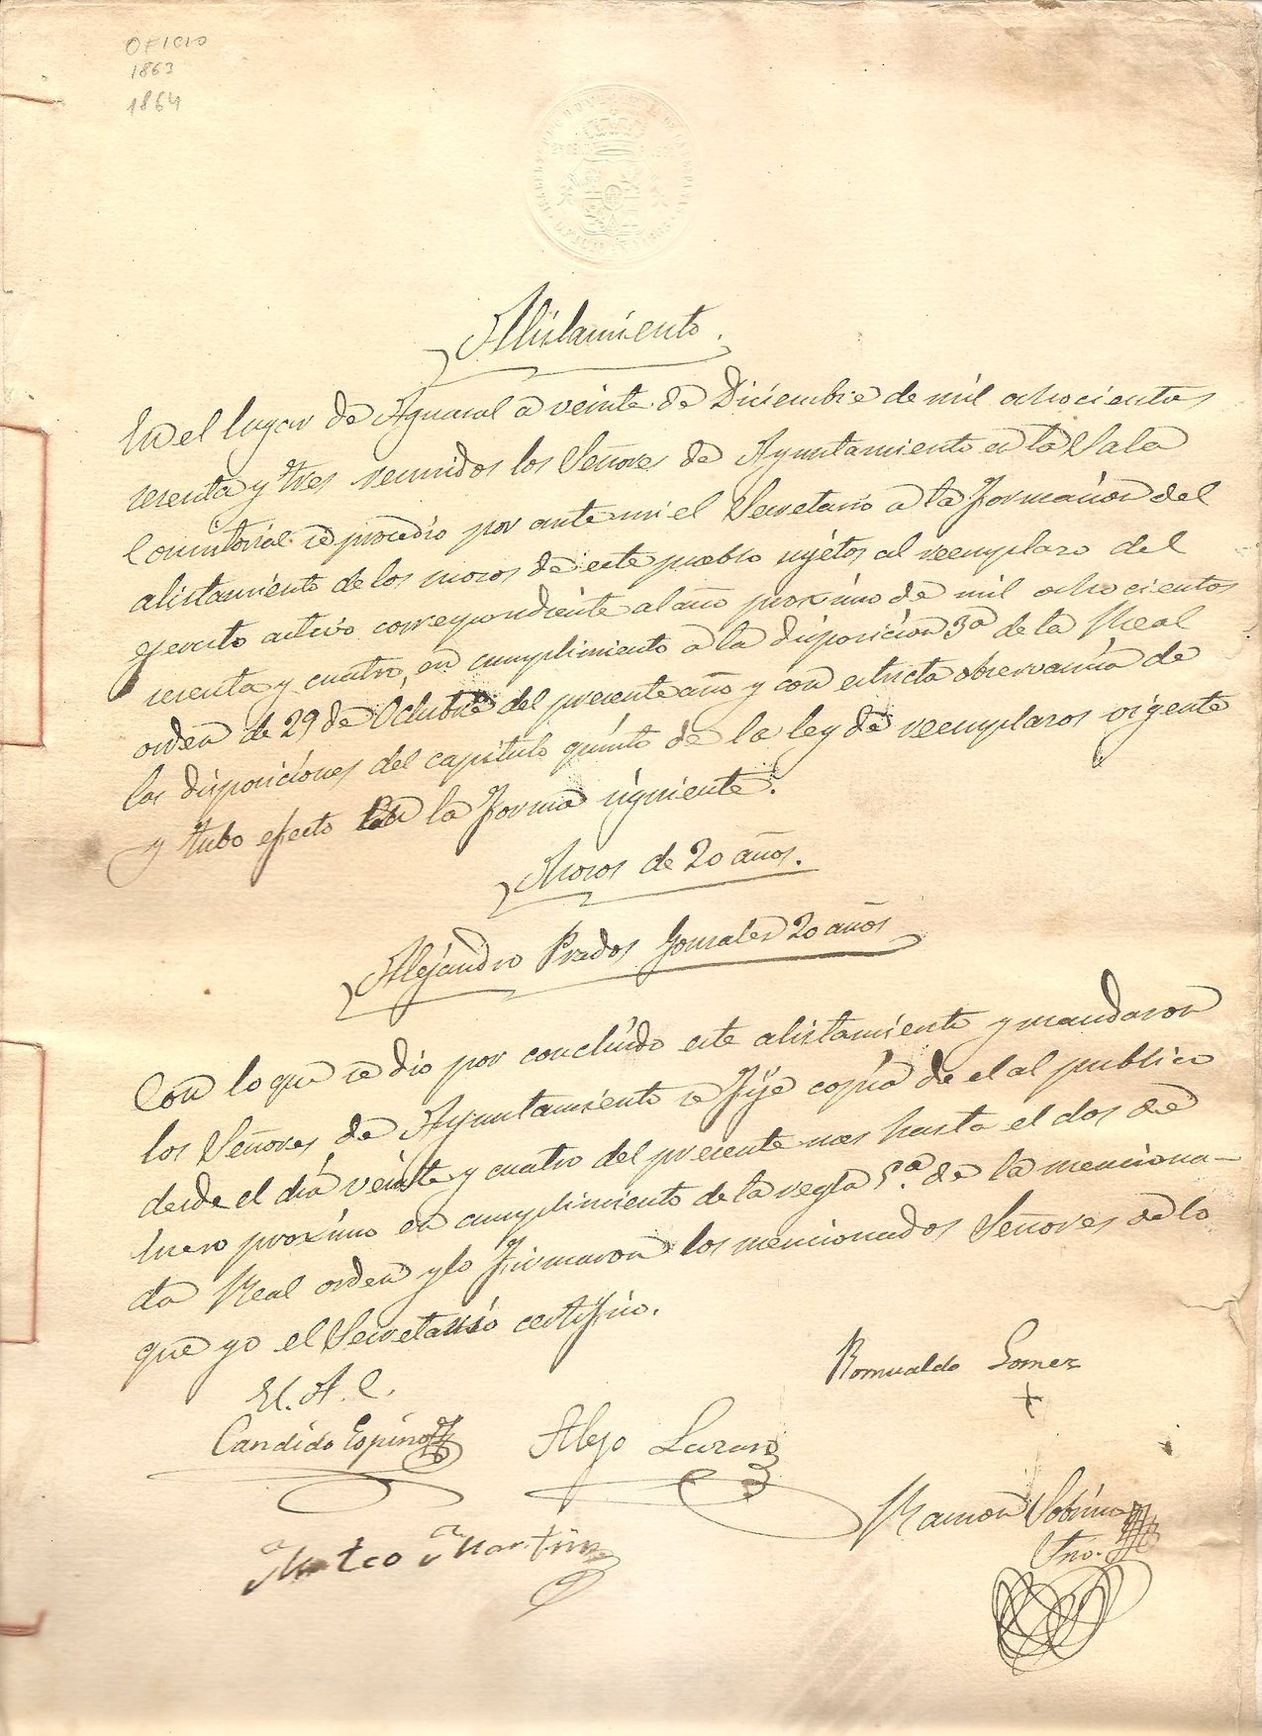 OFICIO
1863
1864
Alistamiento.
En el lugar de Aguasal a veinte de Diciembre de mil ochocientos
sesenta y tres reunidos los Señores de Ayuntamiento en la Sala
Consistorial se procedio por ante mi el Secretario a la formacion del
alistamiento de los mozos de este pueblo sujetos al reemplazo del
ejercito activo correspondiente al año proximo de mil ochocientos
sesenta y cuatro, en cumplimiento a la disposicion 3ª de la Real
orden de 29 de Octubre del presente año y con estricta observancia de
las disposiciones del capitulo quinto de la ley de reemplazos vigente
y tubo efecto en la forma siguiente.
Mozos de 20 años.
Alejandro Prados Gonzalez 20 años
Con lo que se dio por concluido este alistamiento y mandaron
los Señores de Ayuntamiento se fije copia de el al publico
desde el dia veinte y cuatro del presente mes hasta el dos de
Enero proximo en cumplimiento de la regla 5ª. de la menciona-
da Real orden y lo firmaron los mencionados Señores de lo
que yo el Secretario certifico.
El A. C.
Romualdo Gomez
+
Candido Espinosa
Alejo
Ramon Sobrino
Srio.
Mateo Martin